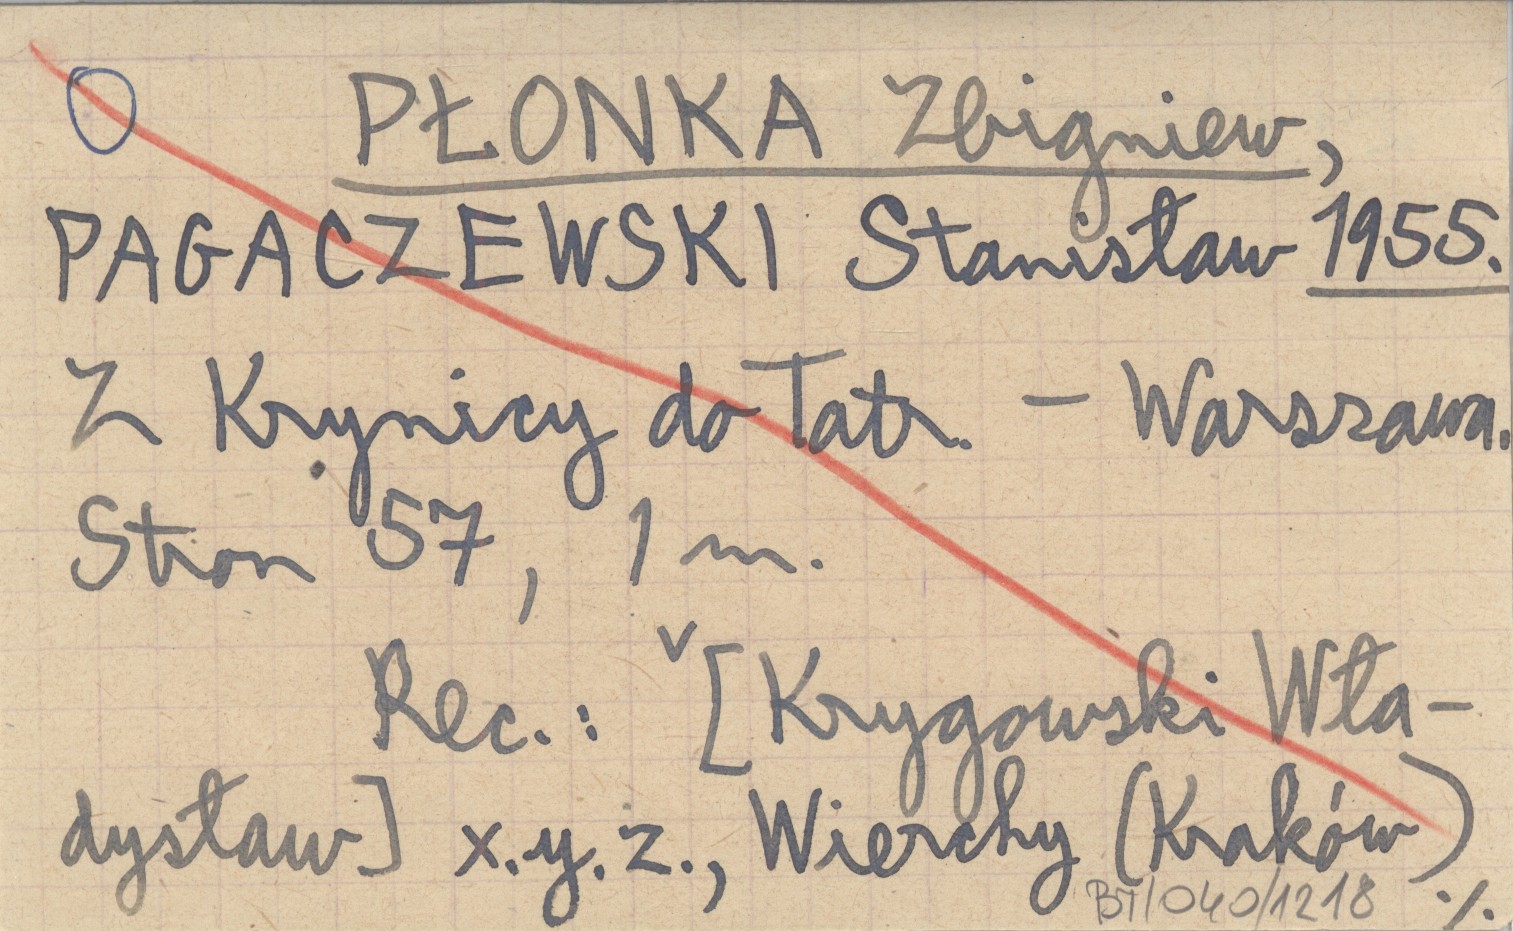 PŁONKA Zbigniew,
PAGACZEWSKI Stanisław 1955.
Z Krynicy do Tatr. – Warszawa.
Stron 57, 1 m.
Rec.: [Krygowski Wła-
dysław] x.y.z., Wierchy (Kraków)
BT/040/1218 ./.